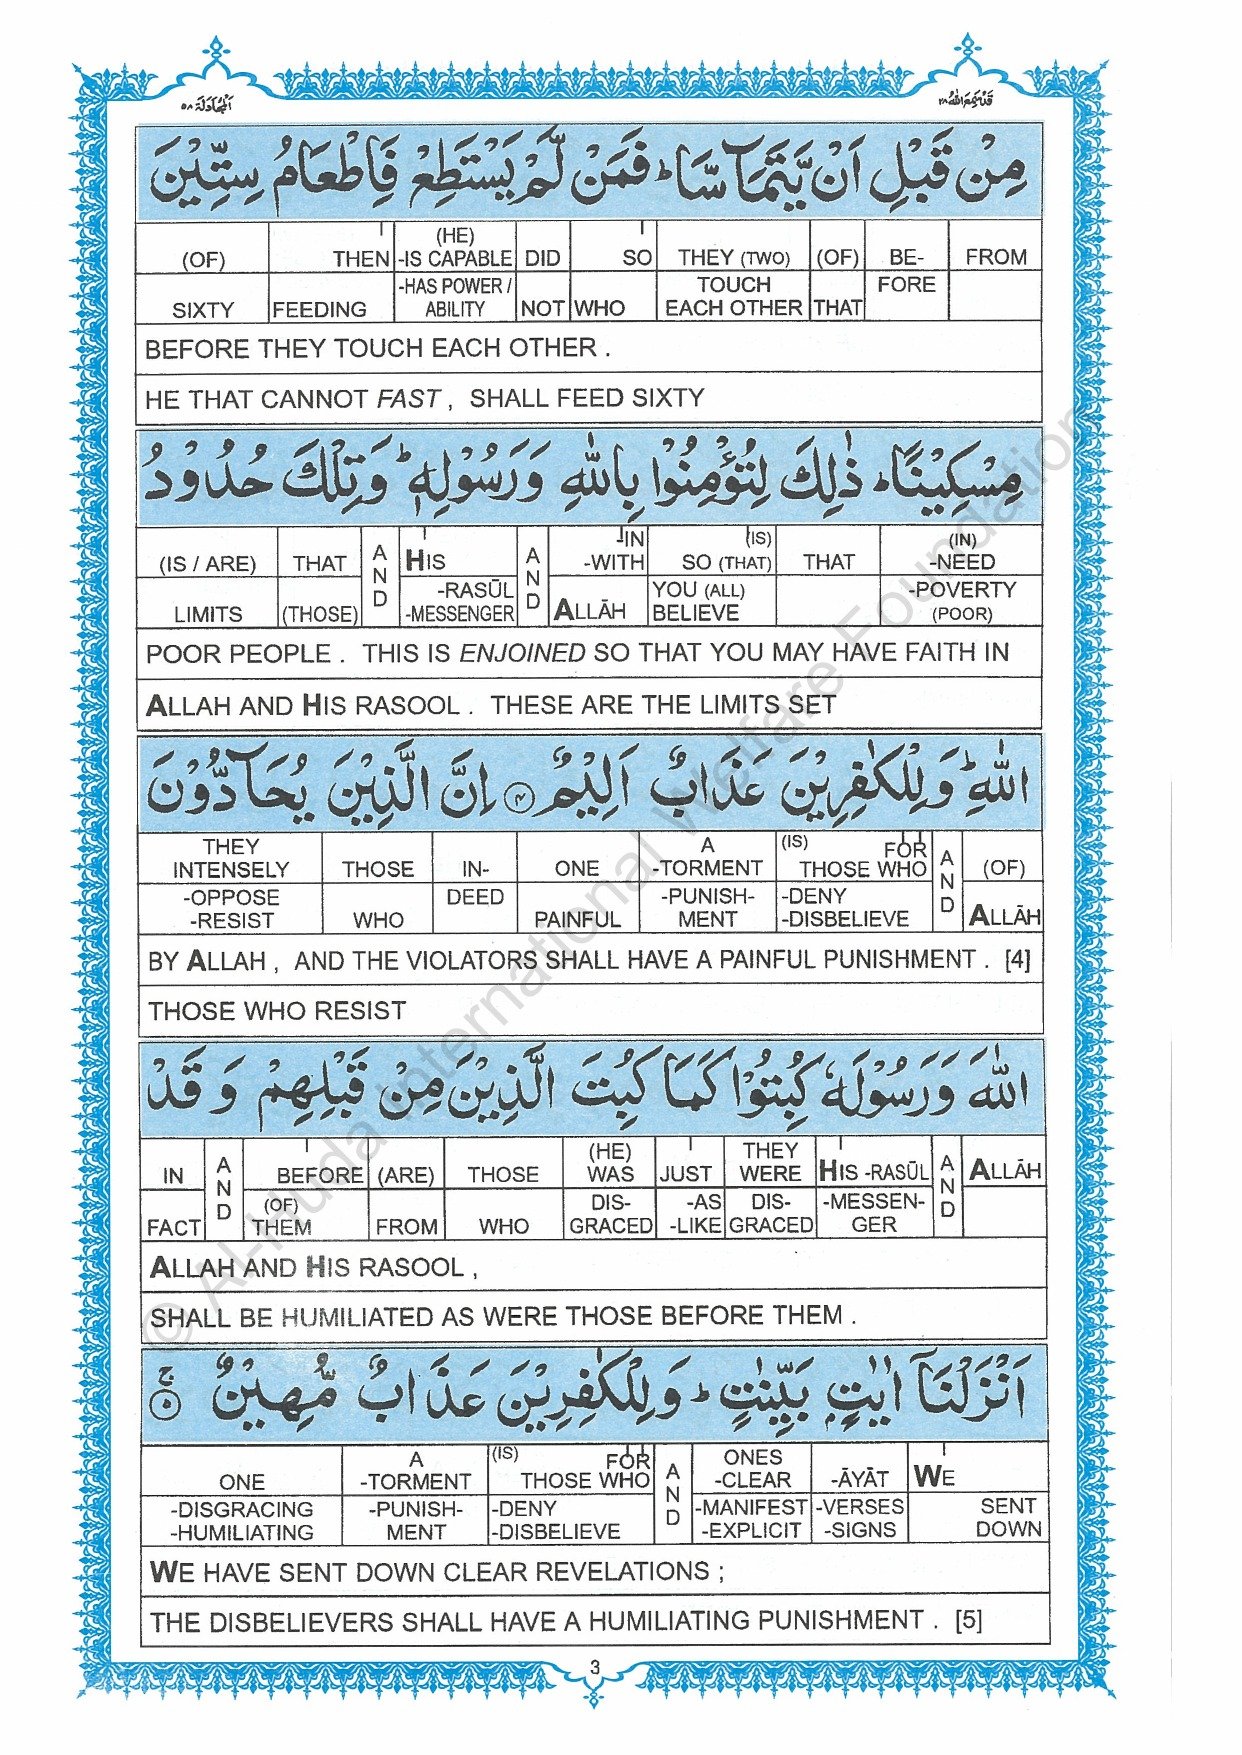 المجادلة ٥٨
قد سمع الله ٢٨
مِنْ قَبْلِ اَنْ يَّتَمَآسَّا ؕ فَمَنْ لَّمْ يَسْتَطِعْ فَاِطْعَامُ سِتِّيْنَ
(OF) THEN (HE) -IS CAPABLE DID SO THEY (TWO) (OF) BE- FROM
SIXTY FEEDING -HAS POWER / ABILITY NOT WHO TOUCH EACH OTHER THAT FORE
BEFORE THEY TOUCH EACH OTHER .
HE THAT CANNOT FAST , SHALL FEED SIXTY
مِسْكِيْنًا ؕ ذٰلِكَ لِتُؤْمِنُوْا بِاللّٰهِ وَرَسُوْلِهٖ ؕ وَتِلْكَ حُدُوْدُ
(IS / ARE) THAT AND HIS AND -IN -WITH (IS) SO (THAT) THAT (IN) -NEED
LIMITS (THOSE) -RASŪL -MESSENGER ALLĀH YOU (ALL) BELIEVE -POVERTY (POOR)
POOR PEOPLE . THIS IS ENJOINED SO THAT YOU MAY HAVE FAITH IN
ALLAH AND HIS RASOOL . THESE ARE THE LIMITS SET
اللّٰهِ ؕ وَلِلْكٰفِرِيْنَ عَذَابٌ اَلِيْمٌ ۴ اِنَّ الَّذِيْنَ يُحَآدُّوْنَ
THEY INTENSELY THOSE IN- ONE A -TORMENT (IS) FOR THOSE WHO AND (OF)
-OPPOSE -RESIST WHO DEED PAINFUL -PUNISH- MENT -DENY -DISBELIEVE ALLĀH
BY ALLAH , AND THE VIOLATORS SHALL HAVE A PAINFUL PUNISHMENT . [4]
THOSE WHO RESIST
اللّٰهَ وَرَسُوْلَهٗ كُبِتُوْا كَمَا كُبِتَ الَّذِيْنَ مِنْ قَبْلِهِمْ وَقَدْ
IN AND BEFORE (ARE) THOSE (HE) WAS JUST THEY WERE HIS -RASŪL AND ALLĀH
FACT (OF) THEM FROM WHO DIS- GRACED -AS -LIKE DIS- GRACED -MESSEN- GER
ALLAH AND HIS RASOOL ,
SHALL BE HUMILIATED AS WERE THOSE BEFORE THEM .
اَنْزَلْنَآ اٰيٰتٍۭ بَيِّنٰتٍ ؕ وَلِلْكٰفِرِيْنَ عَذَابٌ مُّهِيْنٌ ۚ ۵
ONE A -TORMENT (IS) FOR THOSE WHO AND ONES -CLEAR -ĀYĀT WE
-DISGRACING -HUMILIATING -PUNISH- MENT -DENY -DISBELIEVE -MANIFEST -EXPLICIT -VERSES -SIGNS SENT DOWN
WE HAVE SENT DOWN CLEAR REVELATIONS ;
THE DISBELIEVERS SHALL HAVE A HUMILIATING PUNISHMENT . [5]
3
© Al-Huda International Welfare Foundation